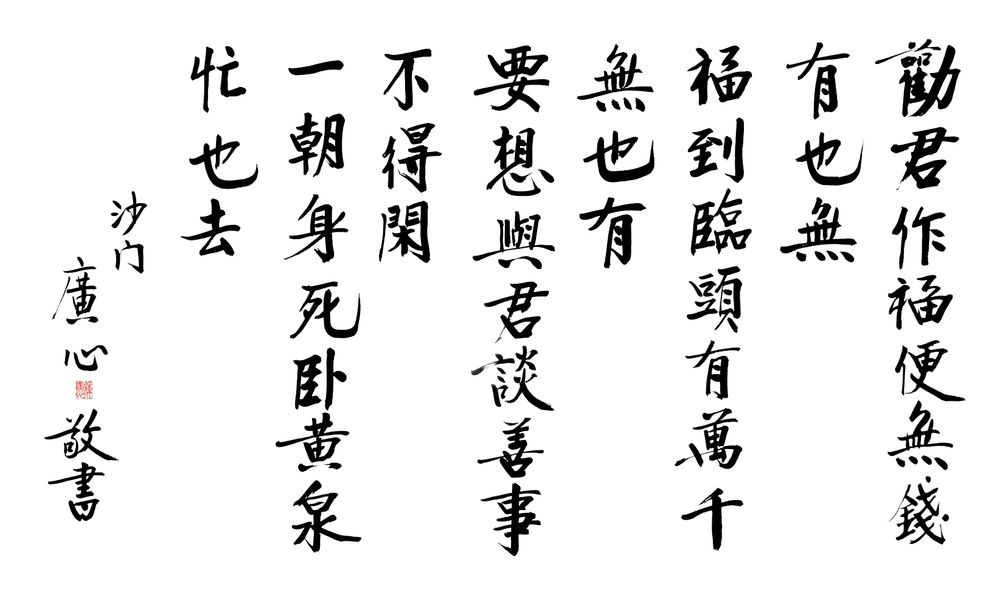 勸君作福便無錢
有也無
福到臨頭有萬千
無也有
要想與君談善事
不得閑
一朝身死卧黃泉
忙也去
沙门
廣心
敬書